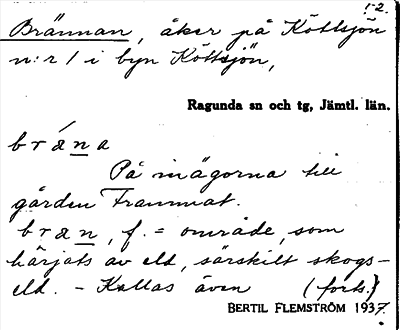 1-2.
Brännan, åker på Köttsjön
n:r 1 i byn Köttsjön,
Ragunda sn och tg, Jämtl. län.
brǽna
På inägorna till
gården Frammat.
bræn, f. = område, som
härjats av eld, särskilt skogs-
eld. - Kallas även (forts.)
BERTIL FLEMSTRÖM 1937.